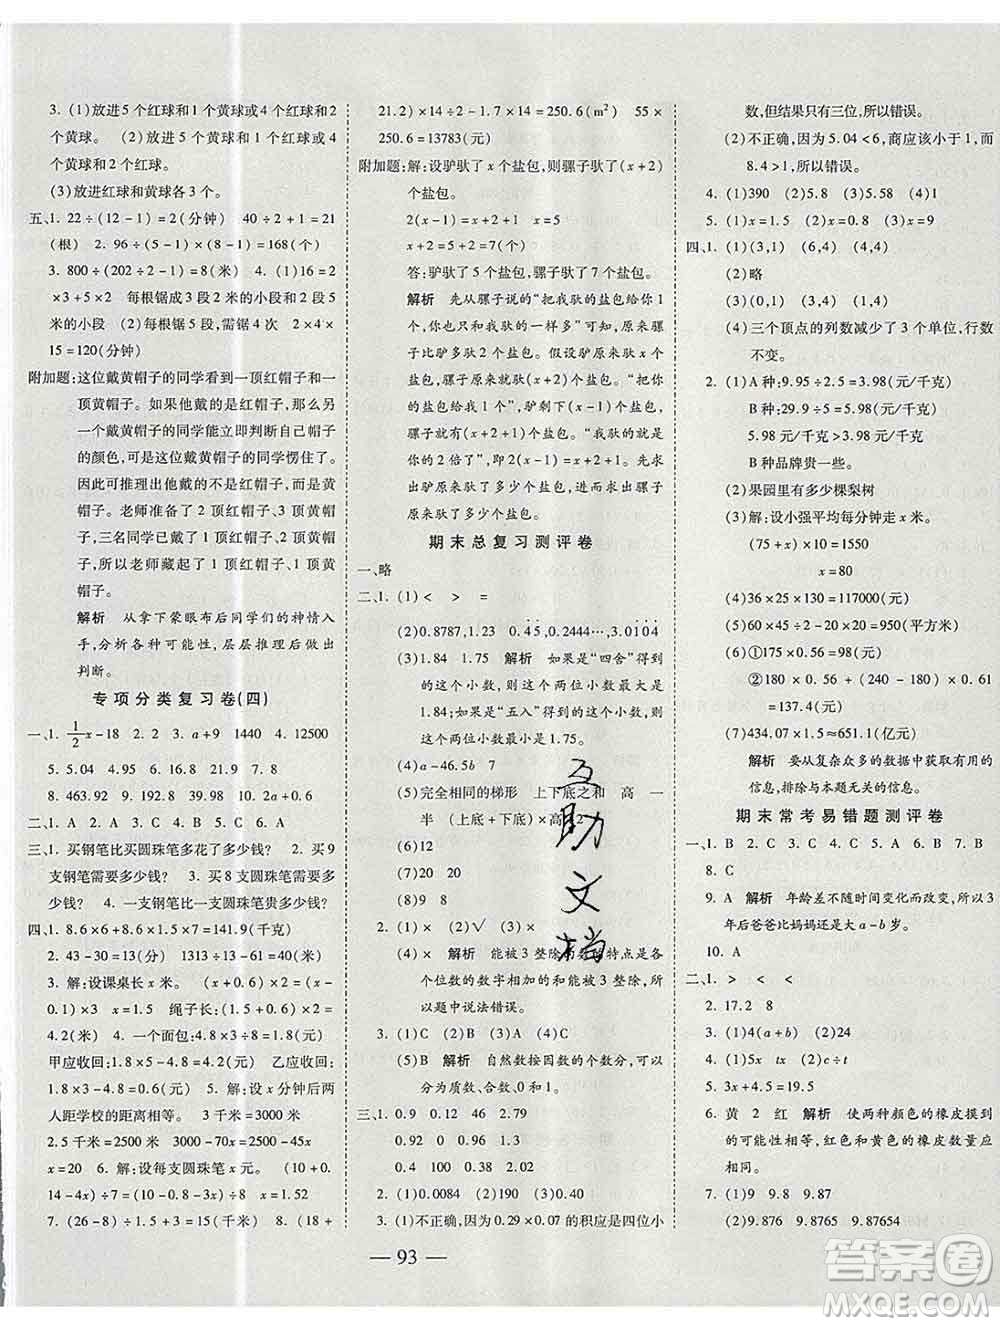 3. (1)放进5个红球和1个黄球或4个红球和
2个黄球。 (2)放进5个黄球和1个红球或
4个黄球和2个红球。
(3)放进红球和黄球各3个。
五、1. 22÷(12-1)=2(分钟) 40÷2+1=21
(根) 2. 96÷(5-1)×(8-1)=168(个)
3. 800÷(202÷2-1)=8(米) 4. (1)16=2
×3+5×2 每根锯成3段2米的小段和2段
5米的小段 (2)每根锯5段,需锯4次 2×4
×15=120(分钟)
附加题:这位戴黄帽子的同学看到一顶红帽子和一
顶黄帽子。如果他戴的是红帽子,那么另
一个戴黄帽子的同学能立即判断自己帽子
的颜色,可是这位戴黄帽子的同学愣住了。
因此可推理出他戴的不是红帽子而是黄
帽子。老师准备了2顶红帽子、3顶黄帽
子,三名同学已戴了1顶红帽子、2顶黄帽
子,所以老师藏起了1顶红帽子、1顶黄
帽子。
解析 从拿下蒙眼布后同学们的神情入
手,分析各种可能性,层层推理后做出
判断。
专项分类复习卷(四)
一、1. 1/2x-18 2. 2 3. a+9 1440 4. 12500
5. 5.04 6. 22 1.21 7. 7.8
8. 463.92 9. 192.8 10. 2a+0.6
二、1. A 2. A 3. B 4. B 5. C 6. A
三、1. 买钢笔比买圆珠笔多花了多少钱? 2. 买9
支钢笔需要多少钱? 3. 买8支圆珠笔需要
多少钱? 4. 一支钢笔比一支圆珠笔贵多少钱?
四、1. 8.6×6+8.6×5+8.6×5.5=141.9(千克)
2. 43-30=13(分) 1313÷13=101(米/分)
3. 解:设课桌长x米。 (x+0.6)×2=
(0.9+0.5)×3 x=1.5 绳子长:(1.5+0.6)×2=
4.2(米) 4. 一个面包:4.8×3÷8=1.8(元)
甲应收回:1.8×5-4.8=4.2(元) 乙应收回:
1.8×3-4.8=0.6(元) 5. 解:设x分钟后两
人距学校的距离相等。 3千米=3000米
2.5千米=2500米 3000-70x=2500-45x
x=20 6. 解:设每支圆珠笔x元。 (x+0.
14-4x)÷(12-4)×8=x x=1.52
7. (26-8)÷(3-1)+8=17(千米) 8. (18+
21.2)×14÷2-1.7×14=250.6(m²) 55×
250.6=13783(元)
附加题:解:设驴驮了x个盐包,则骡子驮了(x+2)
个盐包。
2(x-1)=x+2+1 x=5
x+2=5+2=7(个)
答:驴驮了5个盐包,骡子驮了7个盐包。
解析 先从骡子说的“把我驮的盐包给你1
个,你也只和我驮的一样多”可知,原来骡
子比驴多驮2个盐包。假设驴原来驮了x
个盐包,骡子就驮了(x+2)个盐包。“把你
的盐包给我1个”,驴剩下(x-1)个盐包,
骡子有(x+2+1)个盐包。“我驮的就是
你的2倍了”,所以2(x-1)=x+2+1。先求
出驴原来驮了多少个盐包,再求骡子
原来驮了多少个盐包。
期末总复习测评卷
一、略
二、1. (1)< > =
(2)0.8787,1.23 0.4̇5̇,0.2444…,3.0̇10̇4̇
(3)1.84 1.75 解析 如果是“四舍”得到的
这个小数,那么这个两位小数最大是
1.84;如果是“五入”得到的这个小数,那么
这个两位小数最小是1.75。
(4)a-46.5b 7
(5)完全相同的梯形 上下底之和 高 一
半 (上底+下底)×高÷2
(6)12
(7)20 20
(8)9 8
2. (1)× (2)√ (3)×
(4)× 解析 能被3整除的数的特点是各
个位数的数字相加的和能被3整除,所
以题中说法错误。
3. (1)C (2)B (3)A (4)C
(5)B 解析 自然数按因数的个数分,可以
分为质数、合数、0和1。
三、1. 0.9 0.12 46 2.79
0.92 0.94 0 10
0.4 100 4.8 1.6
2. (1)0.0084 (2)170 (3)0.40
3. (1)不正确,因为0.29×0.07的积应是四位小
数,但结果只有三位,所以错误。
(2)不正确,因为5.04<6,商应该小于1,而
8.4>1,所以错误。
4. (1)390 (2)5.8 (3)5.58 (4)1
5. (1)x=1.5 (2)x=0.8 (3)x=9
四、1. (1)(3,1) (6,4) (4,4)
(2)略
(3)(0,1) (3,4) (1,4)
(4)三个顶点的列数减少了3个单位,行数
不变。
2. (1)A种:9.95÷2.5=3.98(元/千克)
B种:29.9÷5=5.98(元/千克)
5.98元/千克>3.98元/千克
B种品牌贵一些。
(2)果园里有多少棵梨树
(3)解:设小强平均每分钟走x米。
(75+x)×10=1550
x=80
(4)36×25÷2×1.3×200=117000(元)
(5)60×45÷2-20×40÷2=950(平方米)
(6)①175×0.56=98(元)
②180×0.56+(240-180)×0.61
=137.4(元)
(7)434.07×1.5≈651.1(亿元)
解析 要从复杂众多的数据中获取有用的
信息,排除与本题无关的信息。
期末常考易错题测评卷
一、1. B 2. C 3. C 4. B 5. A 6. A 7. B
8. C
9. A 解析 年龄差不随时间变化而改变,所以3
年后爸爸比妈妈还是大a-b岁。
10. A
二、1. > < < <
2. 17.2 8
3. (1)4(a+b) (2)24
4. (1)5x tx (2)c÷t
5. 3x+4=19.5
6. 黄 2 红 解析 使两种颜色的橡皮摸到
的可能性相等,红色和黄色的橡皮数量应
相同。
7. (1)9 9.9 9.87
(2)9.876 9.8765 9.87654
— 93 —
互
助
文
档
答案圈
MXQE.COM